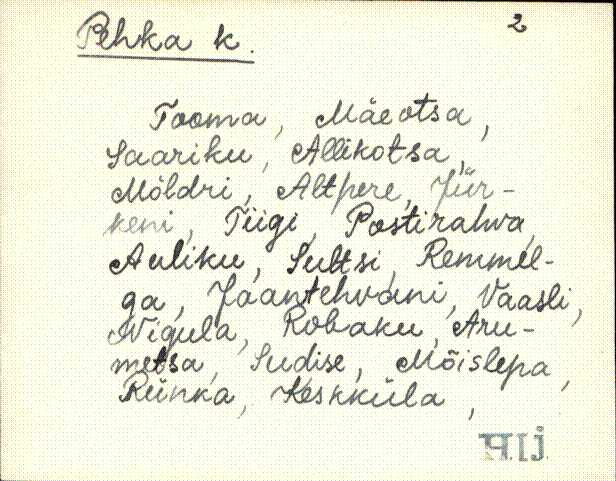 2
Pehka k.
Tooma, Mäeotsa,
Saariku, Allikotsa,
Möldri, Altpere, Jür-
keni, Tiigi, Postirahva,
Auliku, Sultsi, Remmel-
ga, Jaantehvani, Vaasli,
Nigula, Robaku, Aru-
metsa, Sudise, Mõislepa,
Reinka, Keskküla,
H.J.